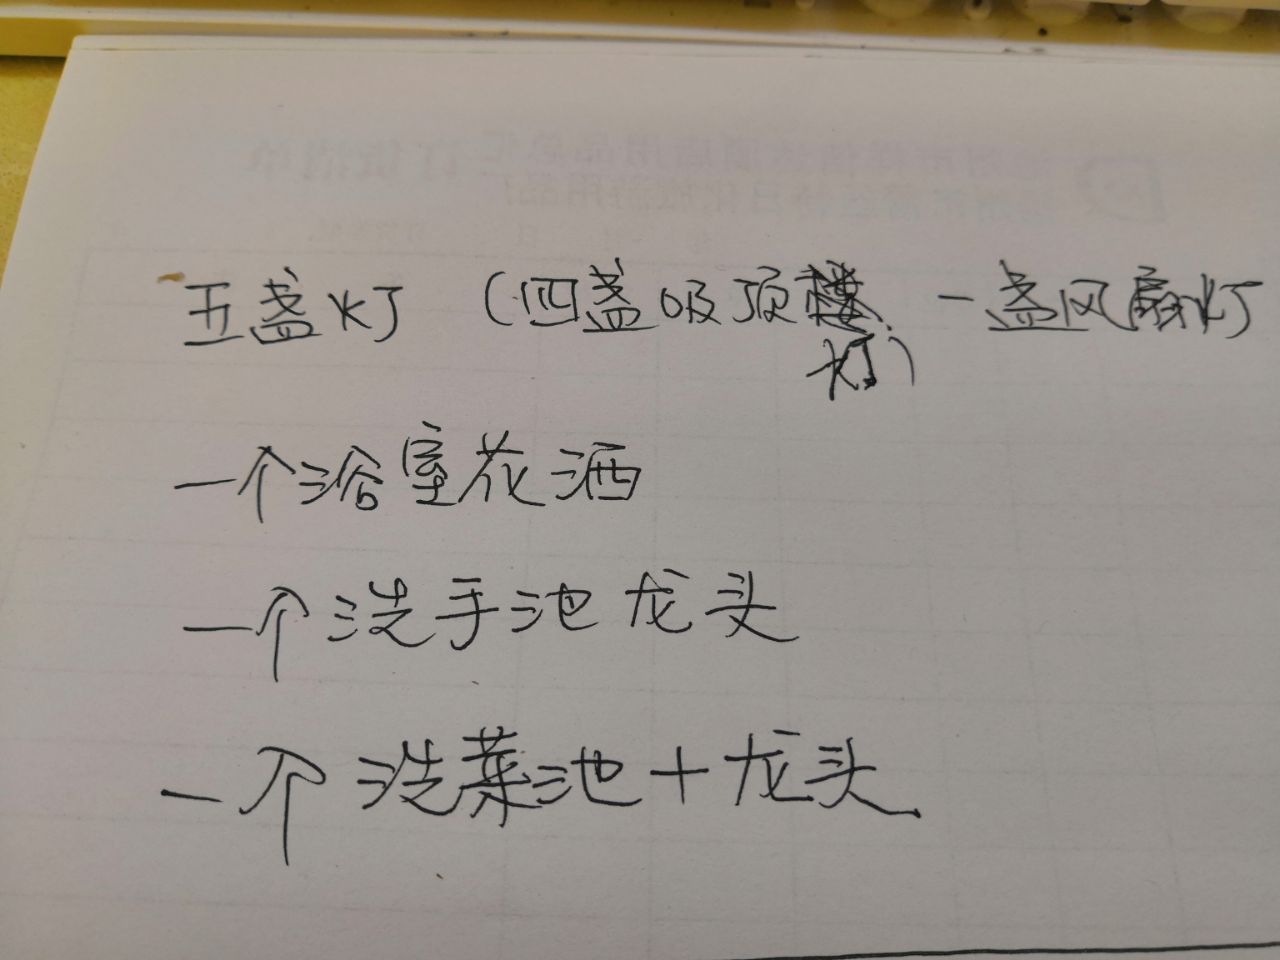 五盏灯（四盏吸顶 一盏风扇灯
灯）
一个浴室花洒
一个洗手池龙头
一个洗菜池+龙头